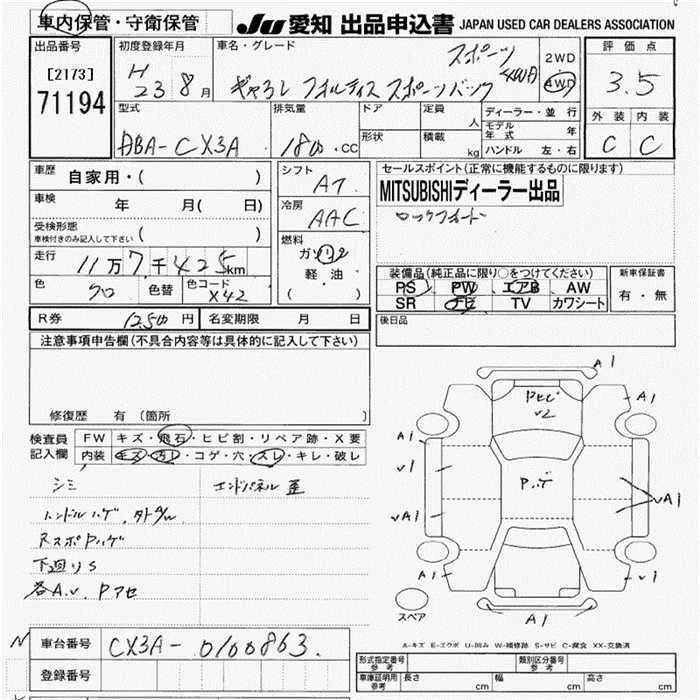 車内保管・守衛保管
JU 愛知 出品申込書 JAPAN USED CAR DEALERS ASSOCIATION
出品番号
[2173]
71194
初度登録年月
H23 8月
車名・グレード
スポーツ
ギャラン フォルティス スポーツバック 4WD
2WD
4WD
評価点
3.5
外装 内装
C C
型式
DBA-CX3A
排気量
1800 .CC
ドア
形状
定員 人
積載 kg
ディーラー・並行
モデル年式 年
ハンドル 左・右
車歴 自家用・( )
車検 年 月( 日)
受検形態
車検付きのみ記入して下さい ( )
走行
11万7千425km
色 クロ 色替 色コード X42
シフト
AT
冷房
AAC
燃料
ガソリン
軽・油
( )
セールスポイント(正常に機能するものに限ります)
MITSUBISHIディーラー出品
ロックフォード
装備品(純正品に限り○をつけてください)
PS PW エアB AW
SR ナビ TV カワシート
新車保証書
有・無
後日品
R券 12500円 名変期限 月 日
注意事項申告欄(不具合内容等は具体的に記入して下さい)
修復歴 有(箇所
検査員記入欄
FW キズ・飛石・ヒビ割・リペア跡・X要
内装 キズ・汚レ・コゲ・穴・スレ・キレ・破レ
シミ
エンドパネル歪
ハンドルハゲ.
RスポPハゲ
下廻りS
各A.U. Pアセ
A1
Pトビ
U2
A1
A1
U1
Pハゲ
UA1
UA1
A1
U1
A1
スペア
A-キズ E-エクボ U-凹み W-補修跡 S-サビ C-腐食 XX-交換済
N
車台番号 CX3A-0100863
登録番号
形式指定番号
参考
類別区分番号
参考
車庫証明用
参考
長さ cm
幅 cm
高さ cm